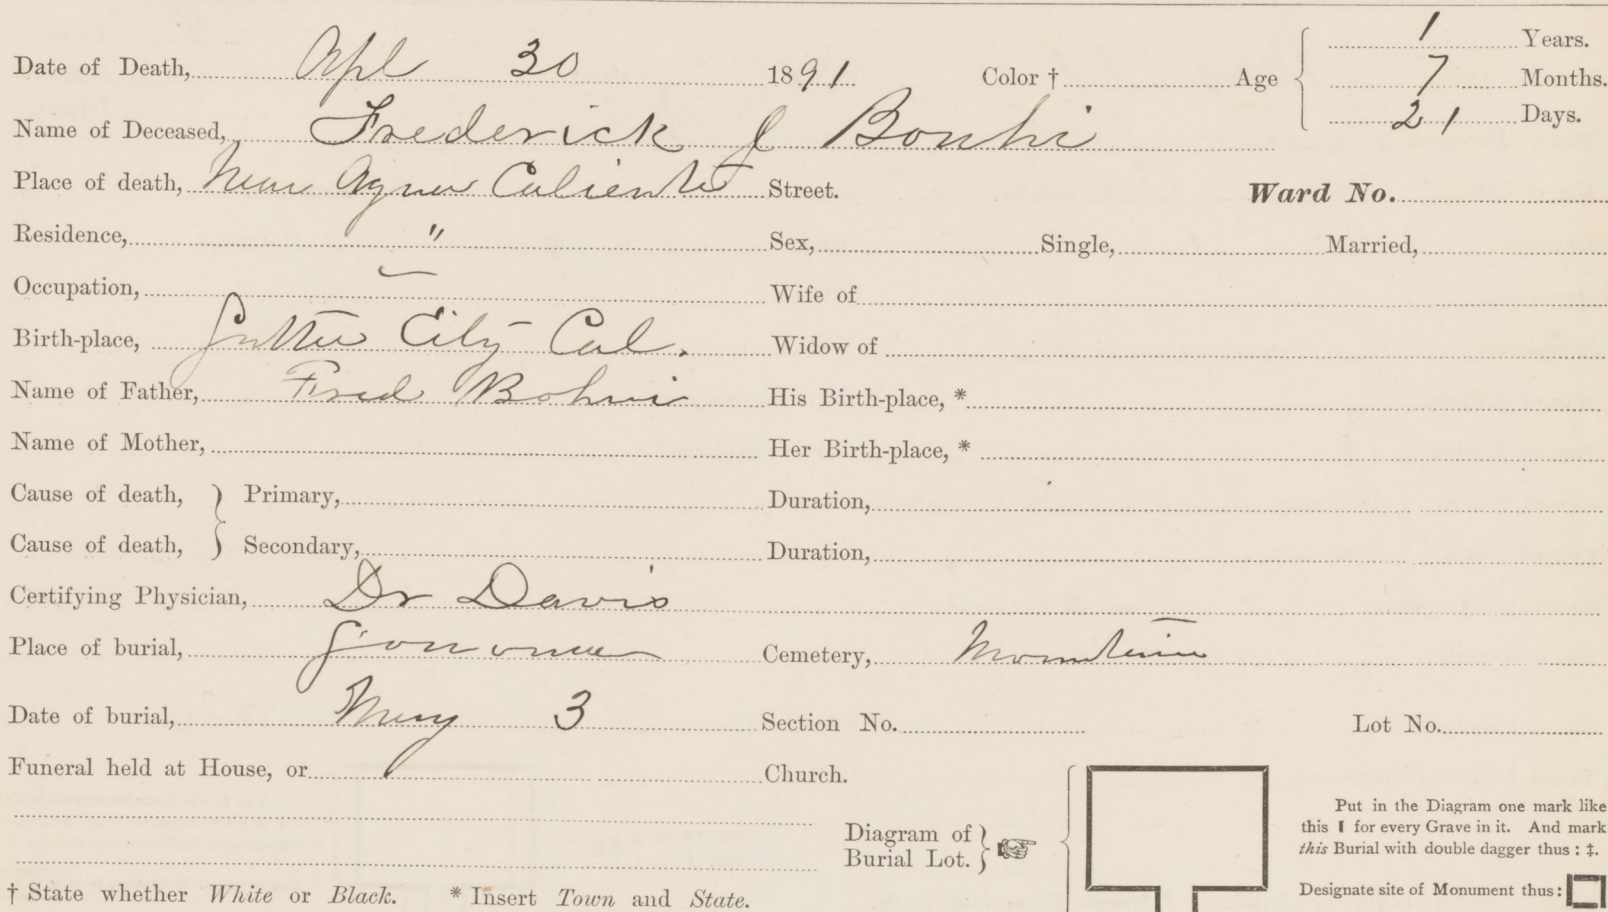 Date of Death, Apl 30 1891 Color † Age 1 Years.
7 Months.
21 Days.
Name of Deceased, Frederick J Bonhi
Place of death, Near Agua Caliente Street. Ward No.
Residence, " Sex, Single, Married,
Occupation, — Wife of
Birth-place, Sutter City Cal. Widow of
Name of Father, Fred Bohni His Birth-place, *
Name of Mother, Her Birth-place, *
Cause of death, } Primary, Duration,
Cause of death, } Secondary, Duration,
Certifying Physician, Dr Davis
Place of burial, Sonoma Cemetery, Mountain
Date of burial, May 3 Section No. Lot No.
Funeral held at House, or Church.
Diagram of
Burial Lot. }
Put in the Diagram one mark like
this ▌ for every Grave in it. And mark
this Burial with double dagger thus : ‡.
Designate site of Monument thus :
† State whether White or Black. * Insert Town and State.